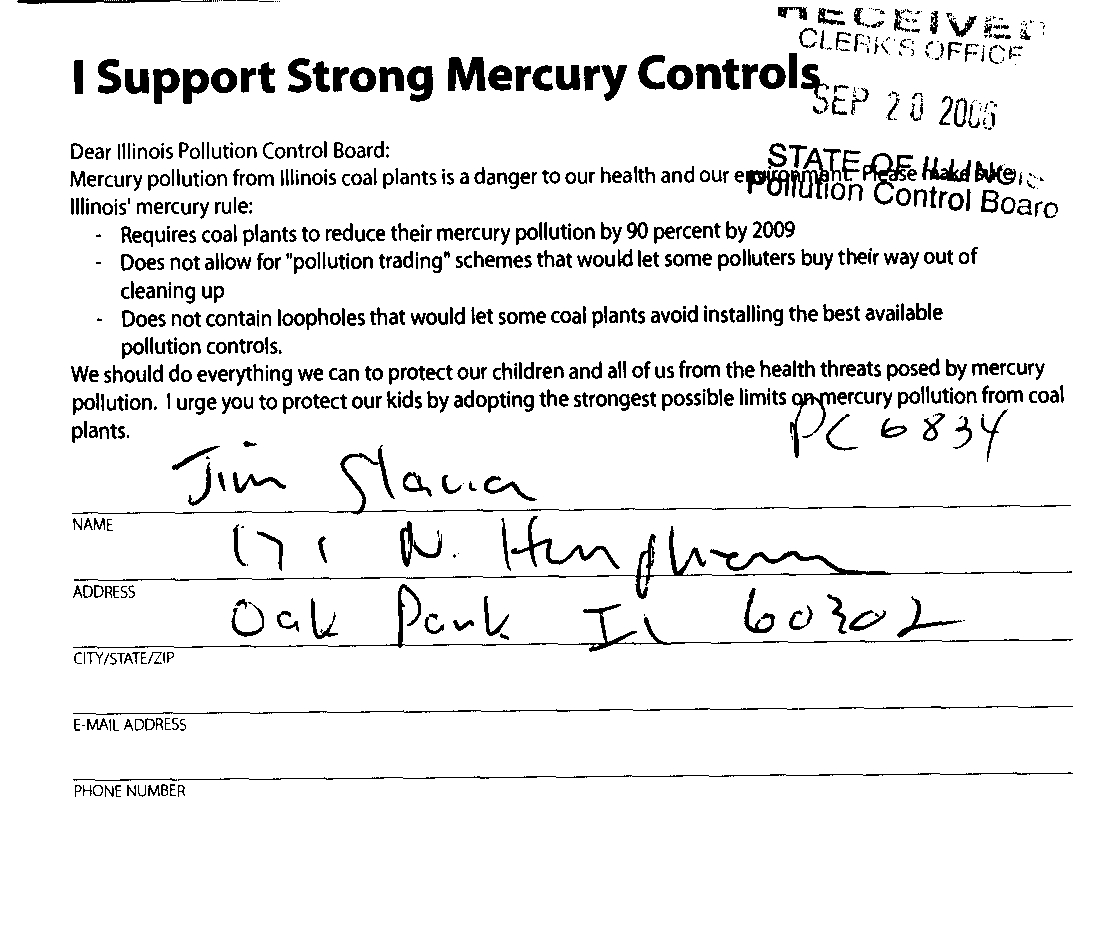 RECEIVED
CLERK'S OFFICE
I Support Strong Mercury Controls
SEP 20 2006
STATE OF ILLINOIS
Pollution Control Board
Dear Illinois Pollution Control Board:
Mercury pollution from Illinois coal plants is a danger to our health and our environment. Please make sure
Illinois' mercury rule:
- Requires coal plants to reduce their mercury pollution by 90 percent by 2009
- Does not allow for "pollution trading" schemes that would let some polluters buy their way out of
cleaning up
- Does not contain loopholes that would let some coal plants avoid installing the best available
pollution controls.
We should do everything we can to protect our children and all of us from the health threats posed by mercury
pollution. I urge you to protect our kids by adopting the strongest possible limits on mercury pollution from coal
plants.
PC 6834
Jim
NAME
171 N.
ADDRESS
Oak Park IL 60302
CITY/STATE/ZIP
E-MAIL ADDRESS
PHONE NUMBER